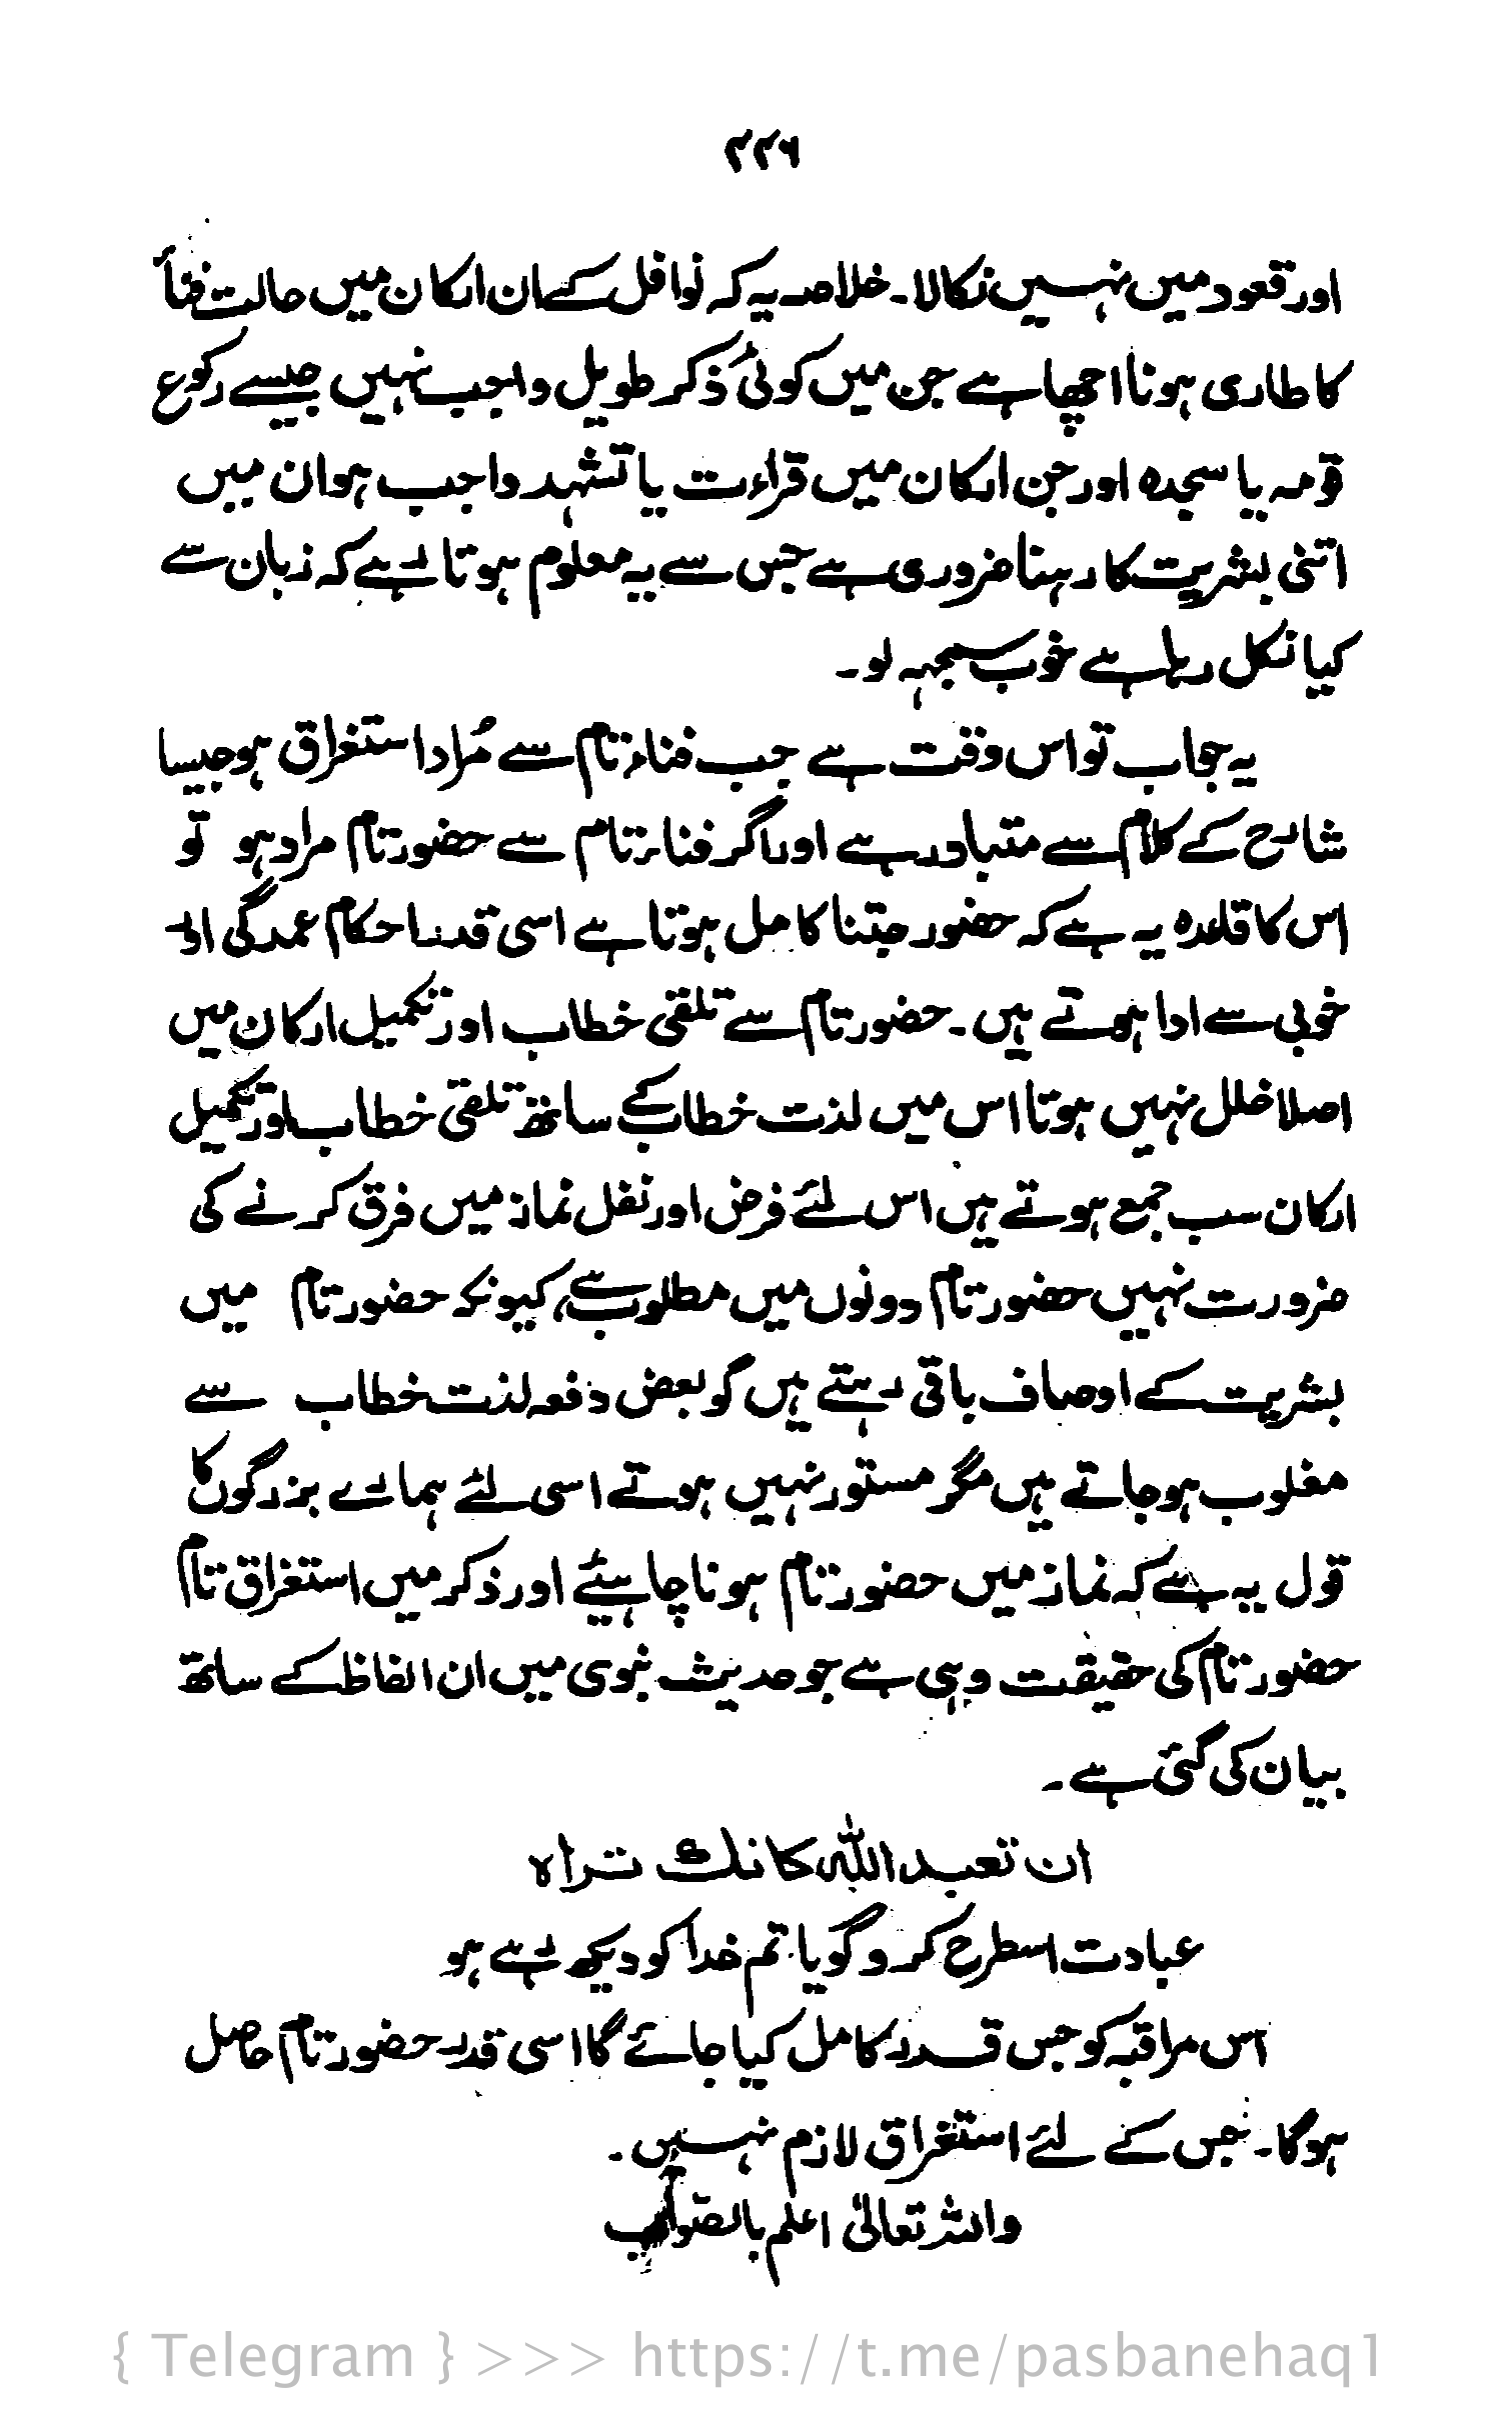 ۲۲۶
اور قعود میں نہیں نکالا۔ خلاصہ یہ کہ نوافل کے ان ارکان میں حالت فناً
کا طاری ہونا اچھا ہے جن میں کوئی ذکر طویل واجب نہیں جیسے رکوع
قومہ یا سجدہ اور جن ارکان میں قراءت یا تشہد واجب ہو ان میں
اتنی بشریت کا رہنا ضروری ہے جس سے یہ معلوم ہوتا رہے کہ زبان سے
کیا نکل رہا ہے خوب سمجہہ لو۔
یہ جواب تو اس وقت ہے جب فناء تام سے مُراد استغراق ہو جیسا
شارح کے کلام سے متبادر ہے اور اگر فناء تام سے حضور تام مراد ہو تو
اس کا قاعدہ یہ ہے کہ حضور جتنا کامل ہوتا ہے اسی قدر احکام عمدگی اور
خوبی سے ادا ہوتے ہیں۔ حضور تام سے تلقی خطاب اور تکمیل ارکان میں
اصلا خلل نہیں ہوتا اس میں لذت خطاب کے ساتھ تلقی خطاب اور تکمیل
ارکان سب جمع ہوتے ہیں اس لئے فرض اور نفل نماز میں فرق کرنے کی
ضرورت نہیں حضور تام دونوں میں مطلوب ہے، کیونکہ حضور تام میں
بشریت کے اوصاف باقی رہتے ہیں گو بعض دفعہ لذت خطاب سے
مغلوب ہو جاتے ہیں مگر مستور نہیں ہوتے اسی لئے ہمارے بزرگوں کا
قول یہ ہے کہ نماز میں حضور تام ہونا چاہیئے اور ذکر میں استغراق تام
حضور تام کی حقیقت وہی ہے جو حدیث نبوی میں ان الفاظ کے ساتھ
بیان کی گئی ہے۔
ان تعبد اللہ کانك تراہ
عبادت اسطرح کرو گویا تم خدا کو دیکھ رہے ہو
اس مراقبہ کو جس قدر کامل کیا جائے گا اسی قدر حضور تام حاصل
ہوگا۔ جس کے لئے استغراق لازم نہیں۔
واللہ تعالیٰ اعلم بالصّواب
{ Telegram } >>> https://t.me/pasbanehaq1